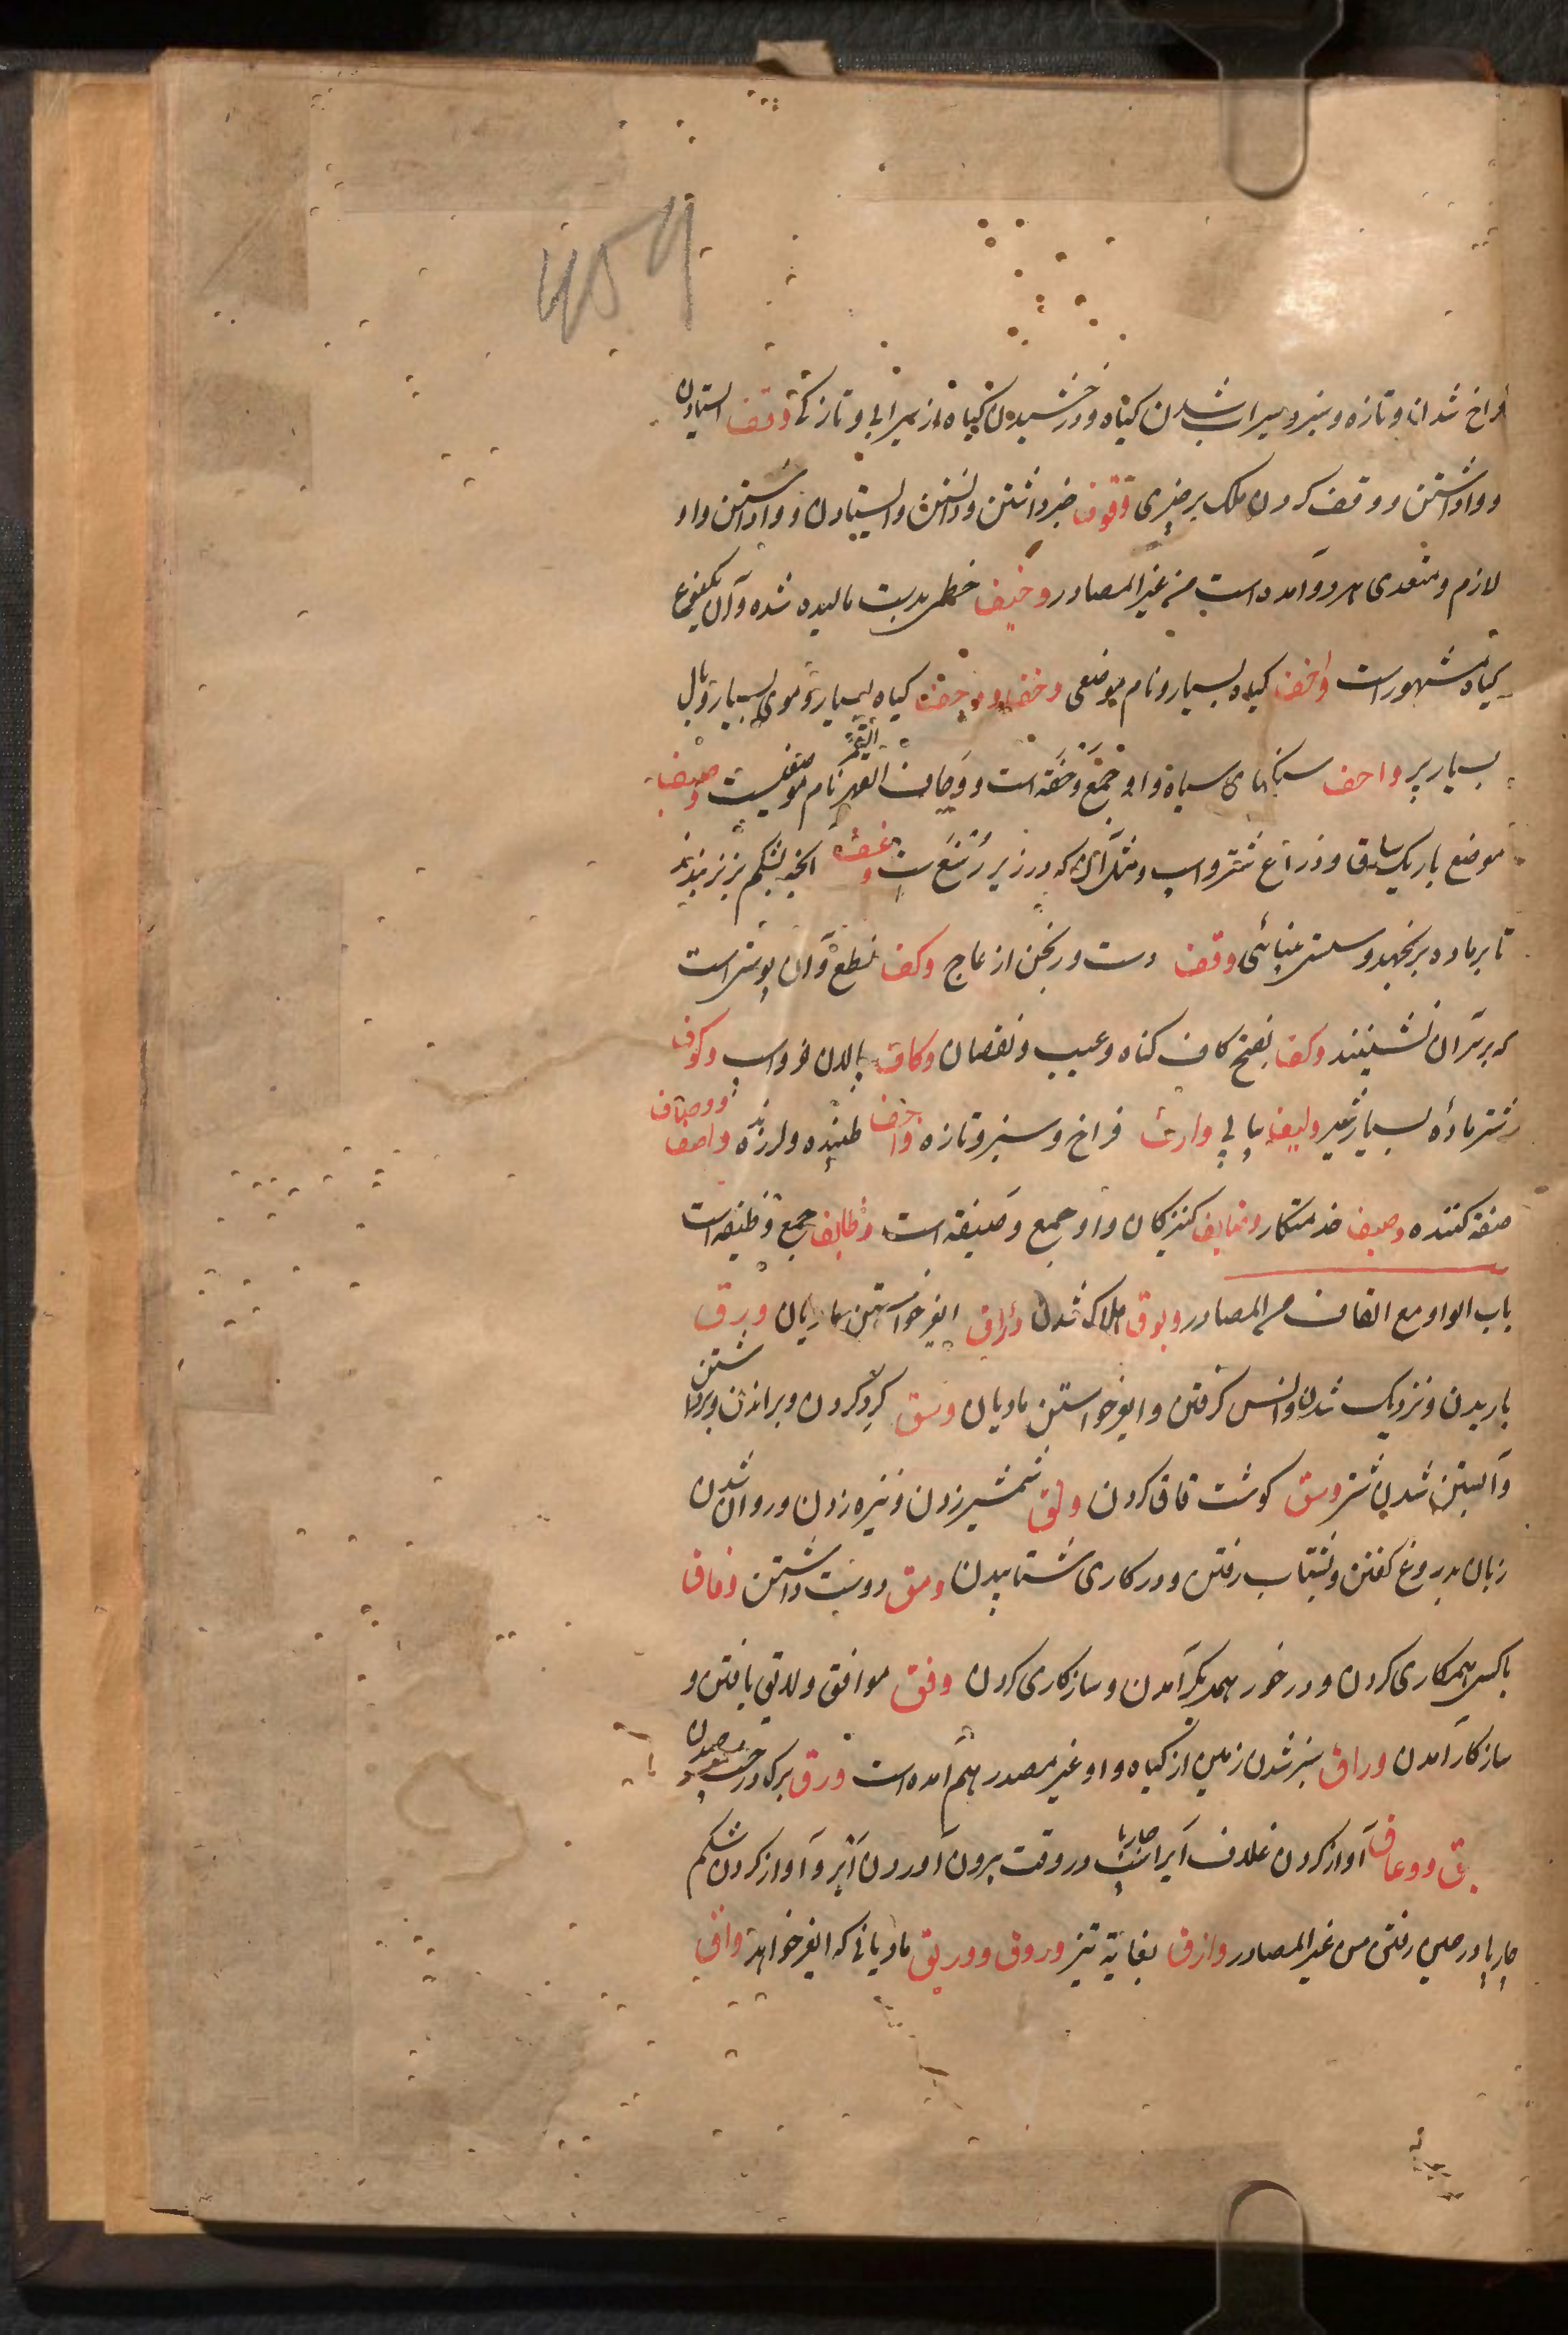 459
فراخ شدن و تازه و سبز و سیراب شدن گیاه و درخشیدن گیاه از سیرابی و تازگی وقف استادن
و واداشتن و وقف کردن ملک بر چیزی وقوف خبر داشتن و دانستن و ایستادن و واداشتن و او
لازم و متعدی هر دو آمده است من غیر المصادر وخیف خطمی بدست مالیده شده و آن یکنوع
گیاه مشهور است واخف گیاه بسیار و نام موضعی گیاه بسیار و موی بسیار و بال
بسیار پر واحف سنگهای سیاه و او جمع وحفه است و وحاف القهر نام موضعیست وصیف
موضع باریک ساق و ذراع شتر و اسب آنچه بشکم بز نر بندند
تا بر ماده برنجهد و سستی بینائی وقف دست ورنجن از عاج وکف نطع و آن پوستی است
که بر سر آن نشینند وکف بفتح کاف گناه و عیب و نقصان وکاف پالان خر و اسب وکوف
شتر ماده بسیار شیر ولیف پیاپی وارف فراخ و سبز و تازه واجف طپنده و لرزنده واصف و وصاف
صفة کننده وصیف خدمتکار وصایف کنیزکان و او جمع وصیفه است وظایف جمع وظیفه است
باب الواو مع القاف من المصادر وبوق هلاک شدن وداق ایغر خواستن مادیان ودق
باریدن و نزدیک شدن و انس گرفتن و ایغر خواستن مادیان وسق گرد کردن و براندن و برداشتن
و آبستن شدن شتر وشق گوشت قاق کردن ولق شمشیر زدن و نیزه زدن و روان شدن
زبان بدروغ گفتن و بشتاب رفتن و در کاری شتابیدن ومق دوست داشتن وفاق
با کسی همکاری کردن و در خور همدیگر آمدن و سازکاری کردن وفق موافق و لایق یافتن و
سازکار آمدن وراق سبز شدن زمین از گیاه و او غیر مصدر هم آمده است ورق برک درخت
یق و وعاق آواز کردن غلاف ایر اسب در وقت بیرون آوردن ایر و آواز کردن شکم
چارپا در حین رفتن من غیر المصادر وازق بغایة تیز وروق و وریق مادیانی که ایغر خواهد وافق